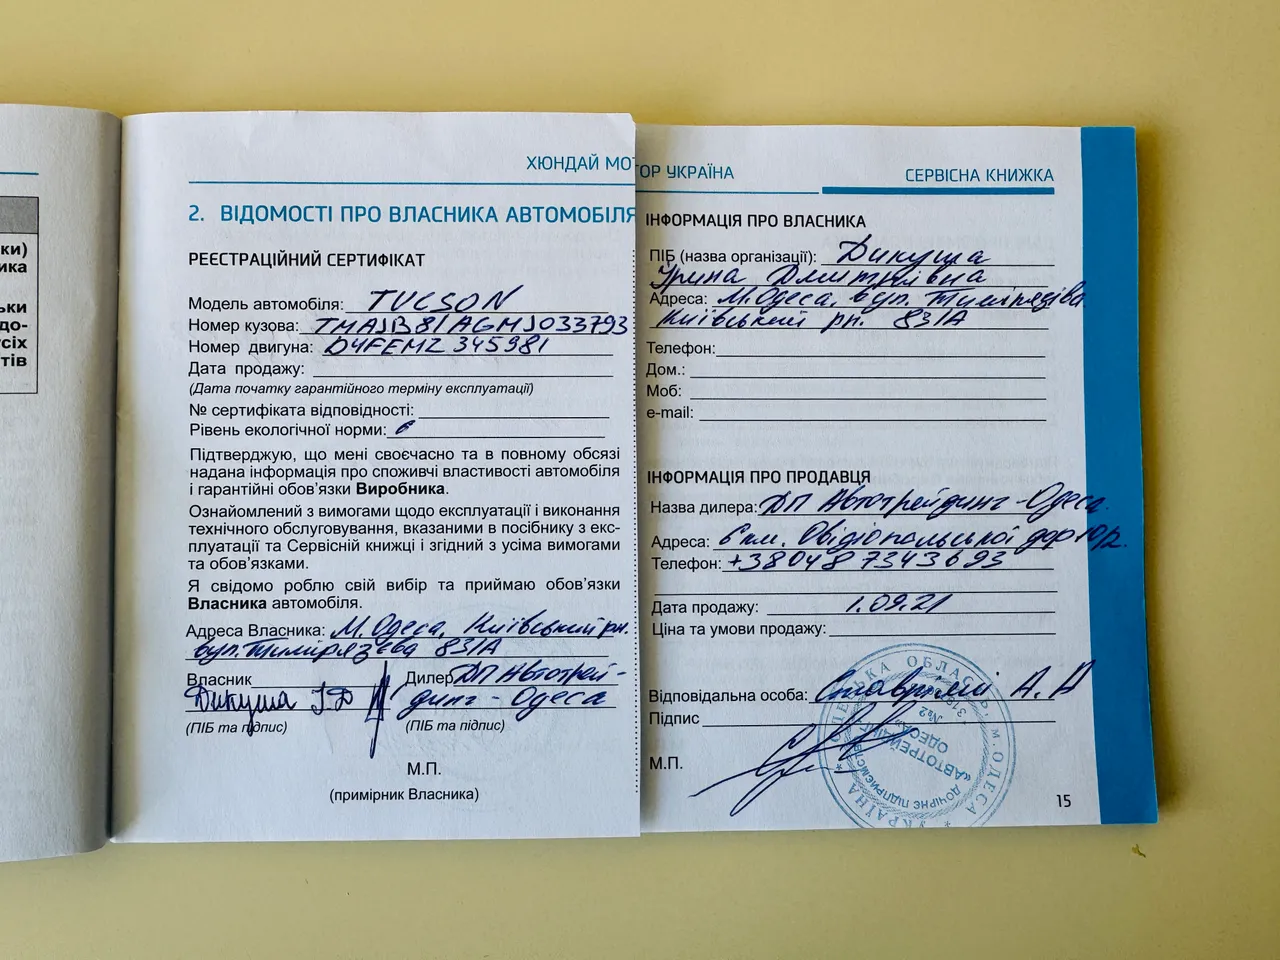 ки)
ика
ьки
до-
усіх
тів
ХЮНДАЙ МОТОР УКРАЇНА
СЕРВІСНА КНИЖКА
2. ВІДОМОСТІ ПРО ВЛАСНИКА АВТОМОБІЛЯ
РЕЄСТРАЦІЙНИЙ СЕРТИФІКАТ
Модель автомобіля: TUCSON
Номер кузова: TMAJB81AGMJ033793
Номер двигуна: D4FEMZ345981
Дата продажу:
(Дата початку гарантійного терміну експлуатації)
№ сертифіката відповідності:
Рівень екологічної норми: 6
Підтверджую, що мені своєчасно та в повному обсязі
надана інформація про споживчі властивості автомобіля
і гарантійні обов'язки Виробника.
Ознайомлений з вимогами щодо експлуатації і виконання
технічного обслуговування, вказаними в посібнику з екс-
плуатації та Сервісній книжці і згідний з усіма вимогами
та обов'язками.
Я свідомо роблю свій вибір та приймаю обов'язки
Власника автомобіля.
Адреса Власника: м.Одеса, Київський рн.
вул.Тимірязєва 831А
Власник
Дикуша І.Д
(ПІБ та підпис)
Дилер ДП Автотрей-
динг - Одеса
(ПІБ та підпис)
М.П.
(примірник Власника)
ІНФОРМАЦІЯ ПРО ВЛАСНИКА
ПІБ (назва організації): Дикуша
Ірина Дмитрівна
Адреса: м.Одеса, вул. Тимірязєва
Київський рн. 831А
Телефон:
Дом.:
Моб:
e-mail:
ІНФОРМАЦІЯ ПРО ПРОДАВЦЯ
Назва дилера: ДП Автотрейдинг-Одеса
Адреса: 6 км. Овідіопольської дор 10/2.
Телефон: +380487343693
Дата продажу: 1.09.21
Ціна та умови продажу:
Відповідальна особа: А.А
Підпис
М.П.
УКРАЇНА * ОБЛАСТЬ, м.ОДЕСА
ДОЧІРНЄ ПІДПРИЄМСТВО
«АВТОТРЕЙДИНГ-
ОДЕСА»
№2
15